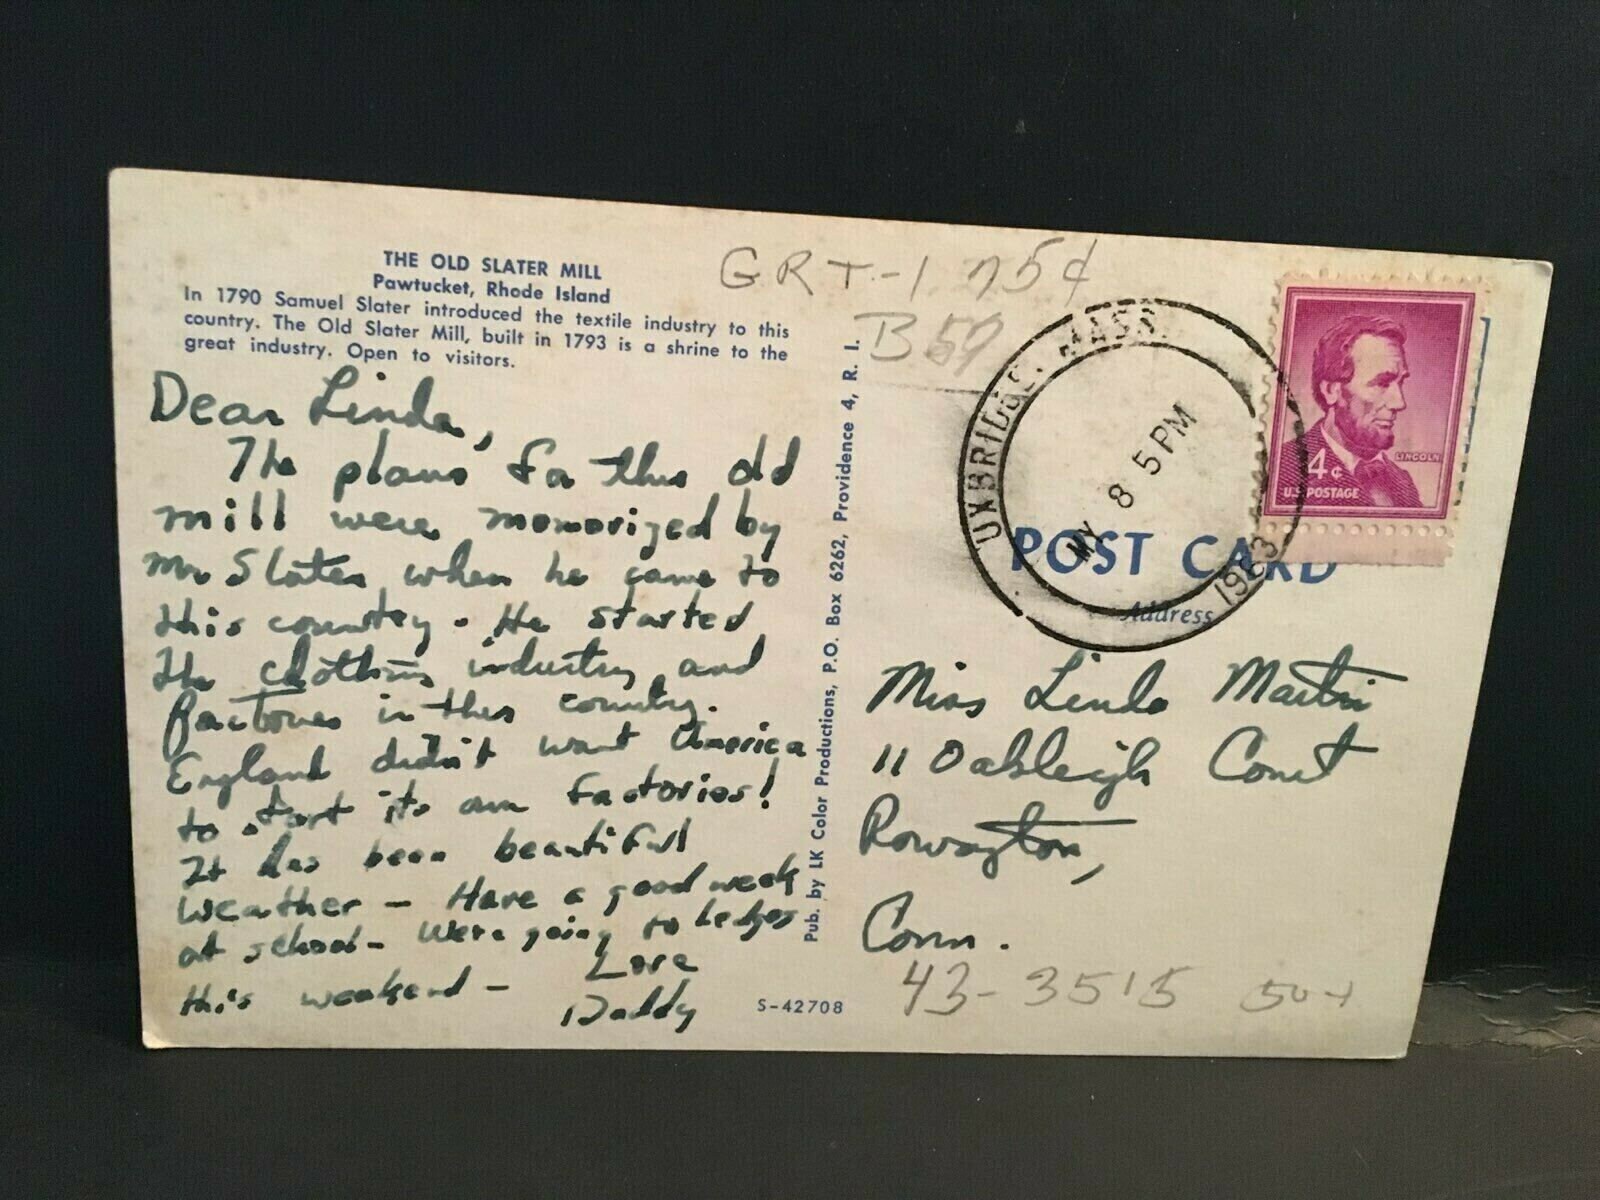 THE OLD SLATER MILL
Pawtucket, Rhode Island
In 1790 Samuel Slater introduced the textile industry to this
country. The Old Slater Mill, built in 1793 is a shrine to the
great industry. Open to visitors.
Dear Linda,
The plans for this old
mill were momorized by
Mr Slater when he came to
this country. He started
the clothing industry and
factories in this country.
England didn't want America
to start its own factories!
It has been beautiful
weather - Have a good week
at school - We're going to Ledges
this weekend - Love
Daddy
S-42708
Pub. by LK Color Productions, P.O. Box 6262, Providence 4, R. I.
GRT-1 75¢
B59
UXBRIDGE, MASS.
MY 8 5 PM
1963
LINCOLN
4¢
U.S. POSTAGE
POST CARD
Address
Miss Linda Martin
11 Oakleigh Court
Rowayton,
Conn.
43-3515